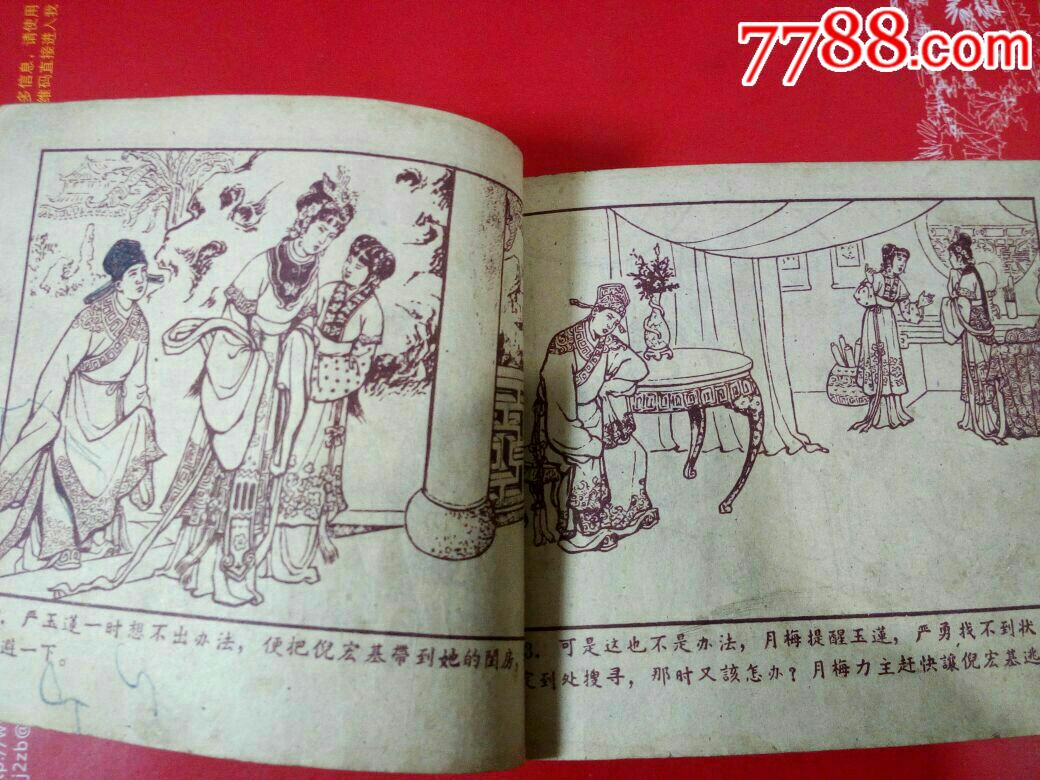 多信息，请使用
维码直接进入我
7788.com
. 严玉莲一时想不出办法，便把倪宏基帶到她的閨房，
避一下。
3. 可是这也不是办法，月梅提醒玉莲，严勇找不到状
定到处搜寻，那时又該怎办？月梅力主赶快讓倪宏基逃
j2zb@